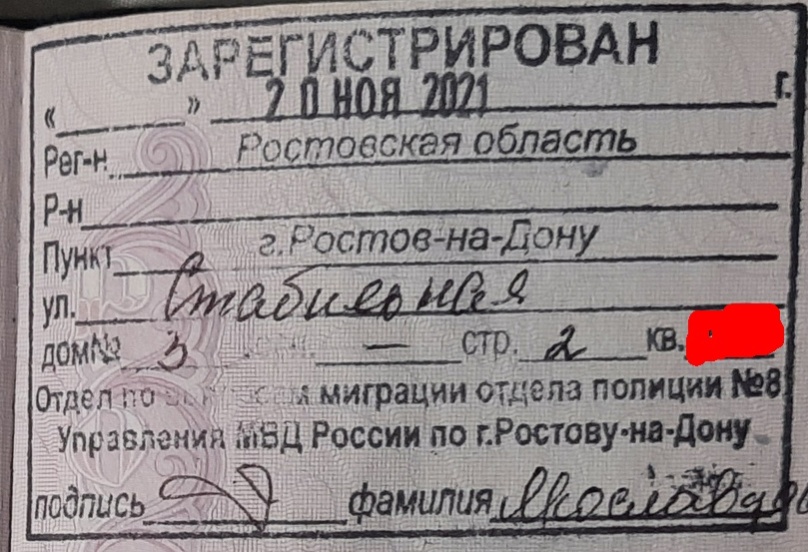 ЗАРЕГИСТРИРОВАН
« » 20 НОЯ 2021 г.
Рег-н Ростовская область
Р-н
Пункт г.Ростов-на-Дону
ул. Стабильная
дом№ 3 — стр. 2 кв.
Отдел по миграции отдела полиции №8
Управления МВД России по г.Ростову-на-Дону
подпись фамилия